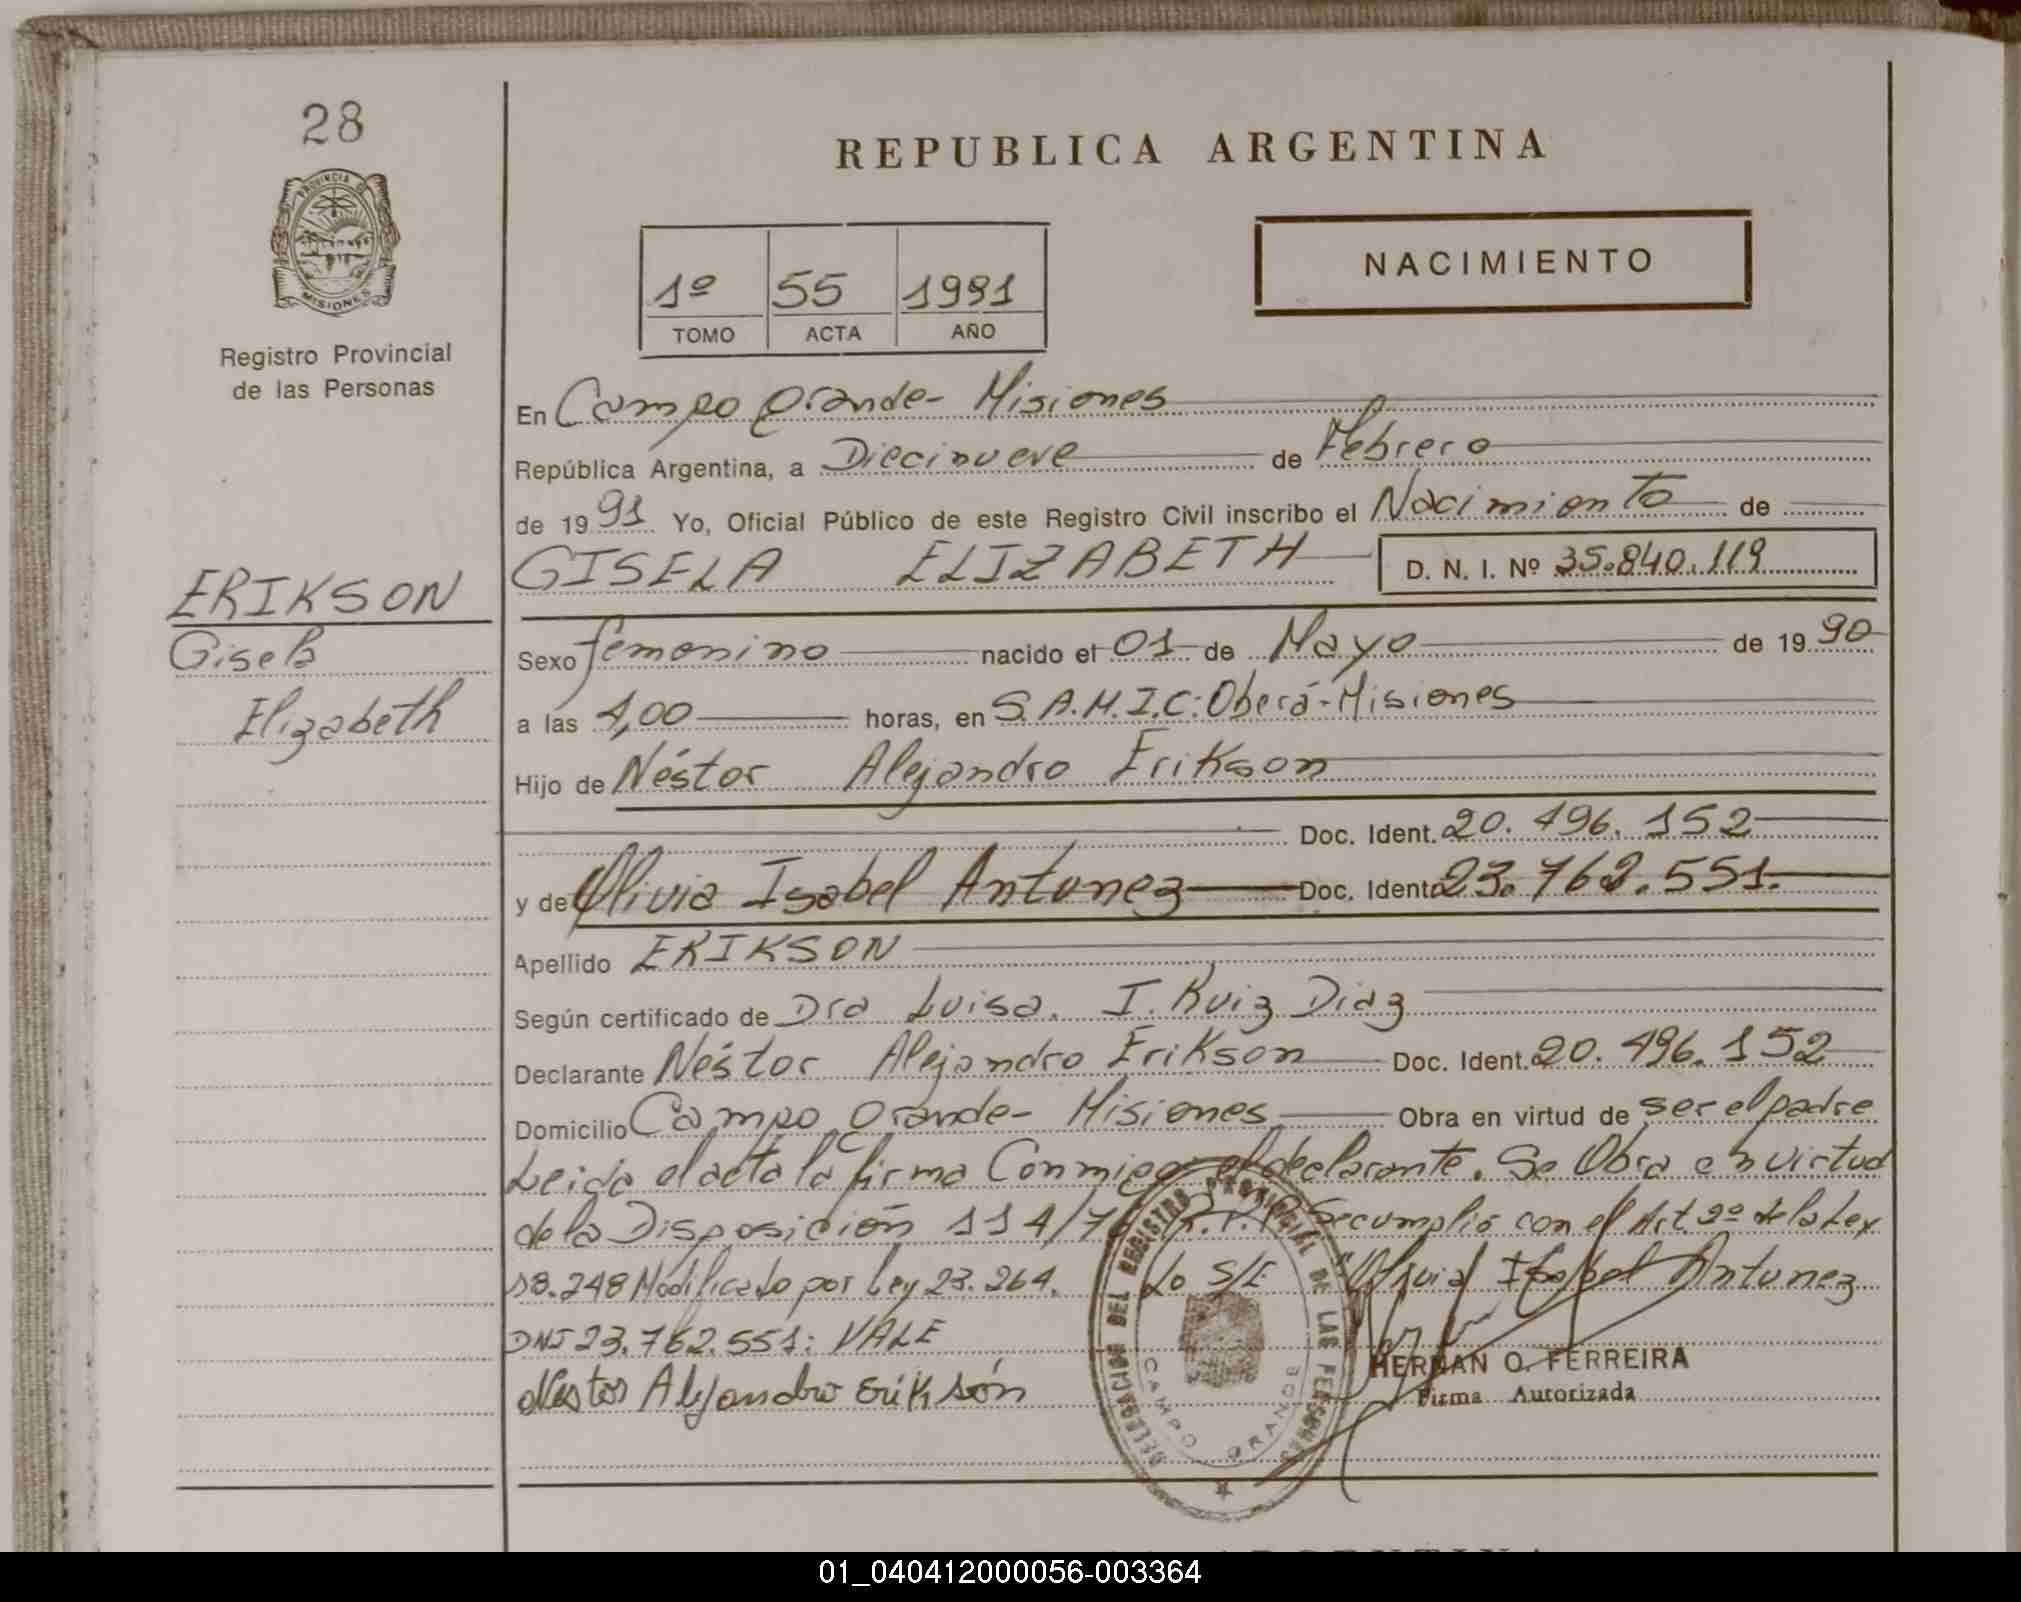 28
PROVINCIA DE
MISIONES
Registro Provincial
de las Personas
ERIKSON
Gisela
Elizabeth
REPUBLICA ARGENTINA
1º 55 1991
TOMO ACTA AÑO
NACIMIENTO
En Campo Grande - Misiones
República Argentina, a Diecinueve de Febrero
de 1991 Yo, Oficial Público de este Registro Civil inscribo el Nacimiento de
GISELA ELIZABETH D. N. I. Nº 35.840.119
Sexo femenino nacido el 01 de Mayo de 1990
a las 4,00 horas, en S.A.M.I.C: Oberá - Misiones
Hijo de Néstor Alejandro Erikson
Doc. Ident. 20.496.152
y de Olivia Isabel Antunez Doc. Ident. 23.762.551.
Apellido ERIKSON
Según certificado de Dra Luisa. I. Ruiz Diaz
Declarante Néstor Alejandro Erikson Doc. Ident. 20.496.152
Domicilio Campo Grande - Misiones Obra en virtud de ser el padre
Leida el acta la firma Conmigo el declarante. Se Obra en virtud
de la Disposición 114/ R.P.P. Se cumplió con el Art. 2º de la Ley
18.248 Modificado por Ley 23.264. Lo S/E "Olivia Isabel Antunez
DNI 23.762.551: VALE
Nestor Alejandro Erikson
HERNAN O. FERREIRA
Firma Autorizada
DELEGACION DEL REGISTRO PROVINCIAL DE LAS PERSONAS
CAMPO GRANDE
01_040412000056-003364